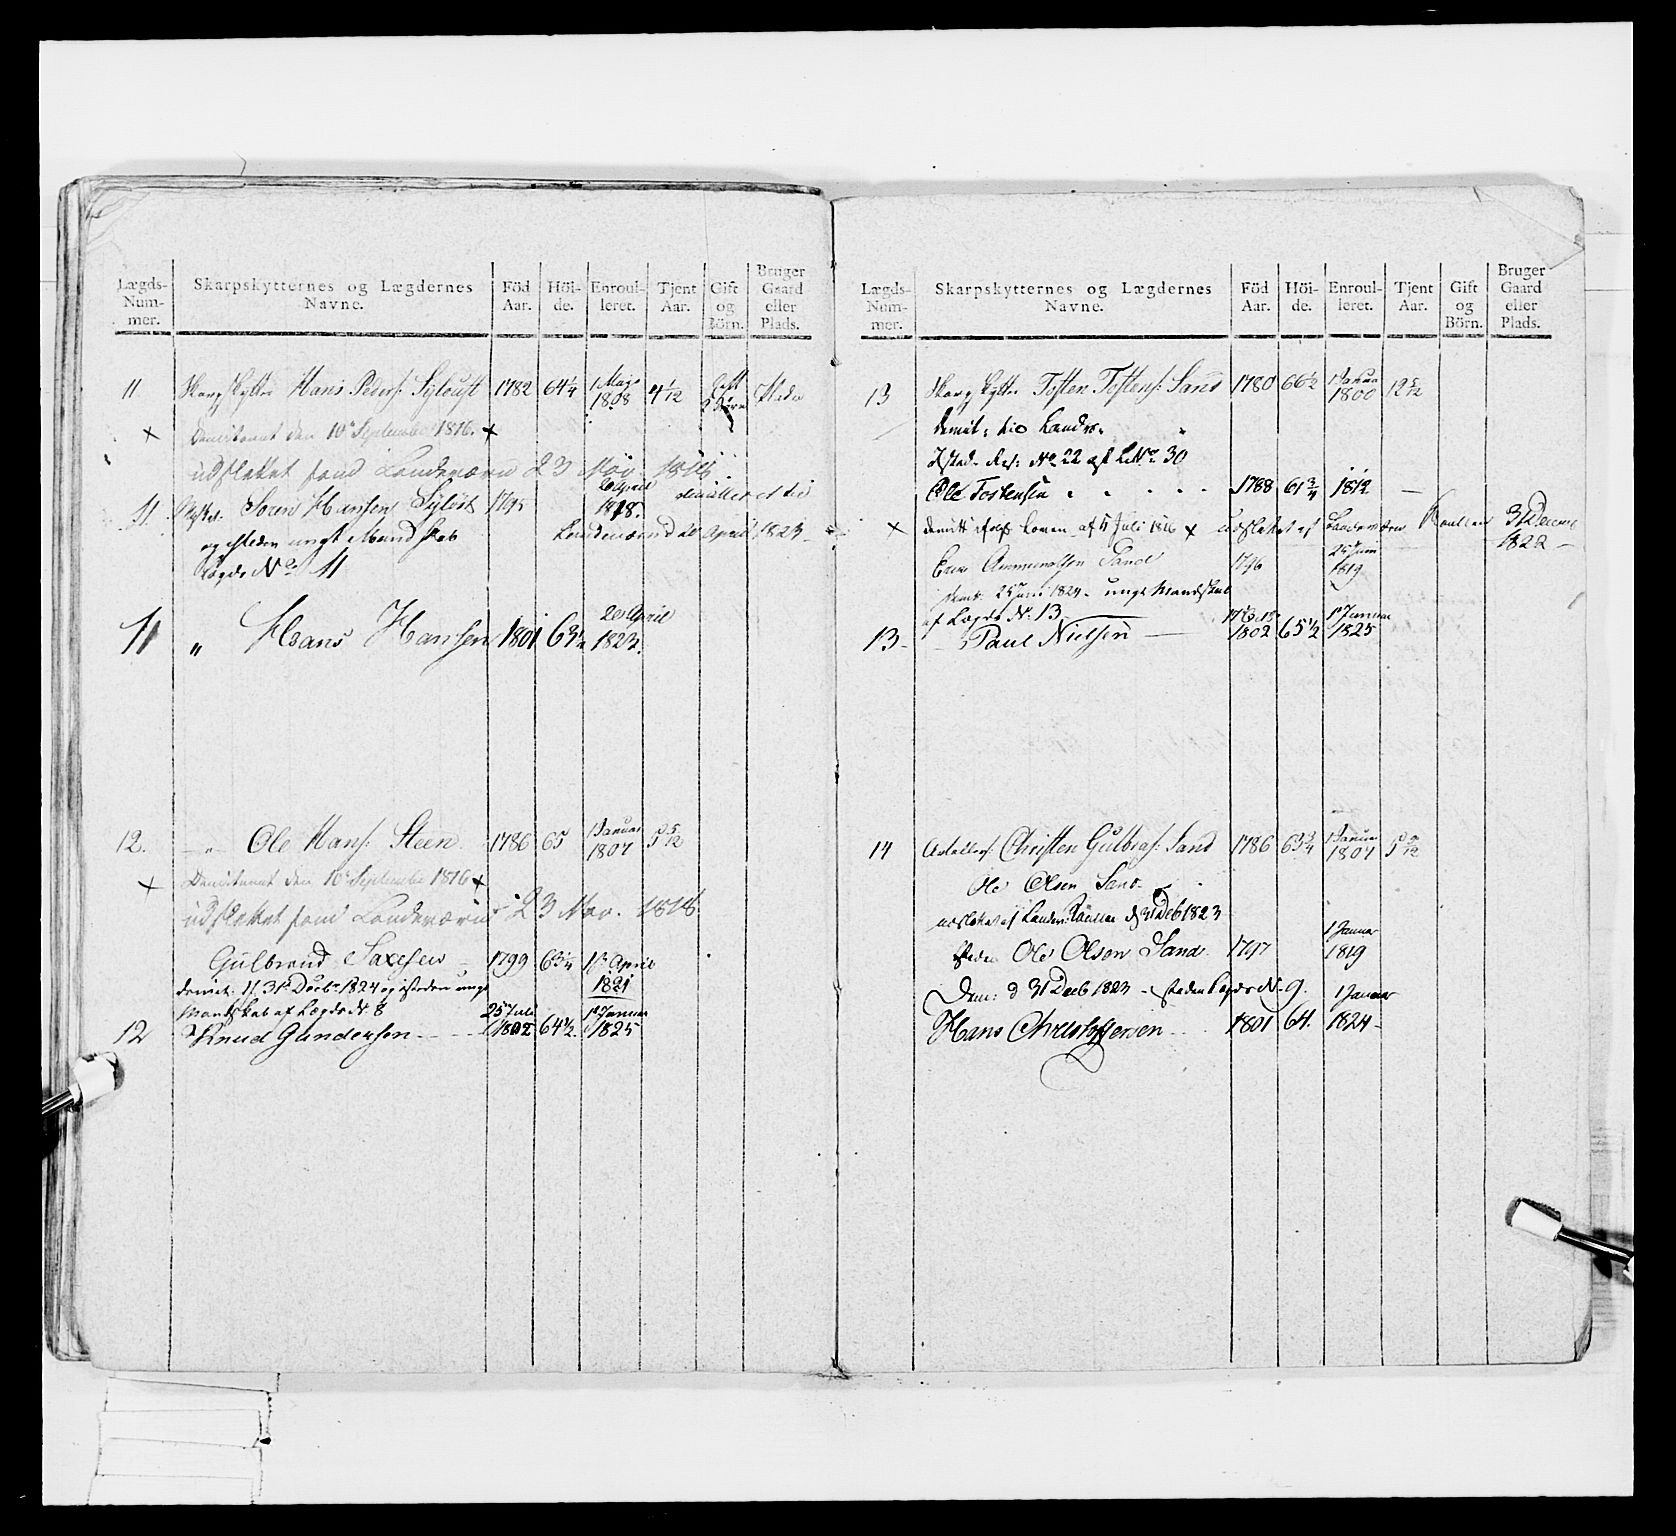 Lægds-Num-mer. Skarpskytternes og Lægdernes Navne. Föd Aar. Höi-de. Enroul-leret. Tjent Aar. Gift og Börn. Bruger Gaard eller Plads.
11 Skarpskytte Hans Peders: 1782 64¼ 1 Maji 1808 4 1/12 Gift 2 Börn
× Demiteret den 10de September 1816. ×
udslettet som Landeværn 23 Nov. 1818.
11 Sören Hansen 1795 20 April 1818.
og isteden ungt Mandskab Landeværn d 20 April 1823
Lægds No 11
11 „ Hans Hansen 1801 63½ 20 April 1823.
12. „ Ole Hans: Steen 1786 65 1 Januar 1807 5 5/12
× Demiteret den 10de September 1816 ×
udslettet som Landeværn 23 Nov. 1818
Gulbrand Saxesen 1799 63¼ April 1821
demit: 31te Decbr 1824 og isteden ungt
Mandskab af Lægds No 8
12 Knud Gundersen 25 Juli 1802 64½ 1te Januar 1825
Lægds-Num-mer. Skarpskytternes og Lægdernes Navne. Föd Aar. Höi-de. Enroul-leret. Tjent Aar. Gift og Börn. Bruger Gaard eller Plads.
13 Skarpskytte Tosten Tostens: Sand 1780 66½ 1 Januar 1800 12 5/12
demit: Landv.
Isted. Res: No 22 af L. No 30
Ole Tostensen 1788 61¾ 1812 —
× demitt Loven af 5 Juli 1816 × Udslettet af Landeværns Roullen 31 Decem 1822 —
Sand 1796 25 Juni 1819
demt: 25 Juni 1824 — ungt Mandskab
af Lægds No 13
13 — Paul Nielsen — 1802 65½ 1te Januar 1825
14 Christen Gulbras: Sand 1786 63¾ 1 Januar 1807
Ole Olsen Sand
udslettet af Landev: Roullen d 31 Deb 1823
Ole Olsen Sand 1797 1 Januar 1819
Dem: d 31 Deeb 1823 — isteden Lægds No 9.
Hans Christophersen 1801 64. 1 Januar 1824 —